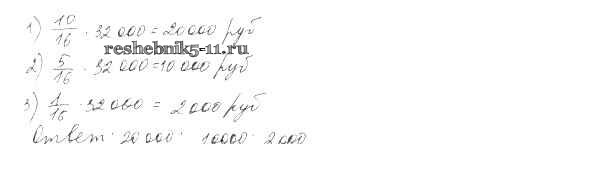 1) 10/16 · 32 000 = 20 000 руб
reshebnik5-11.ru
2) 5/16 · 32 000 = 10 000 руб
3) 1/16 · 32 000 = 2 000 руб
Ответ: 20 000 · 10000 · 2 000